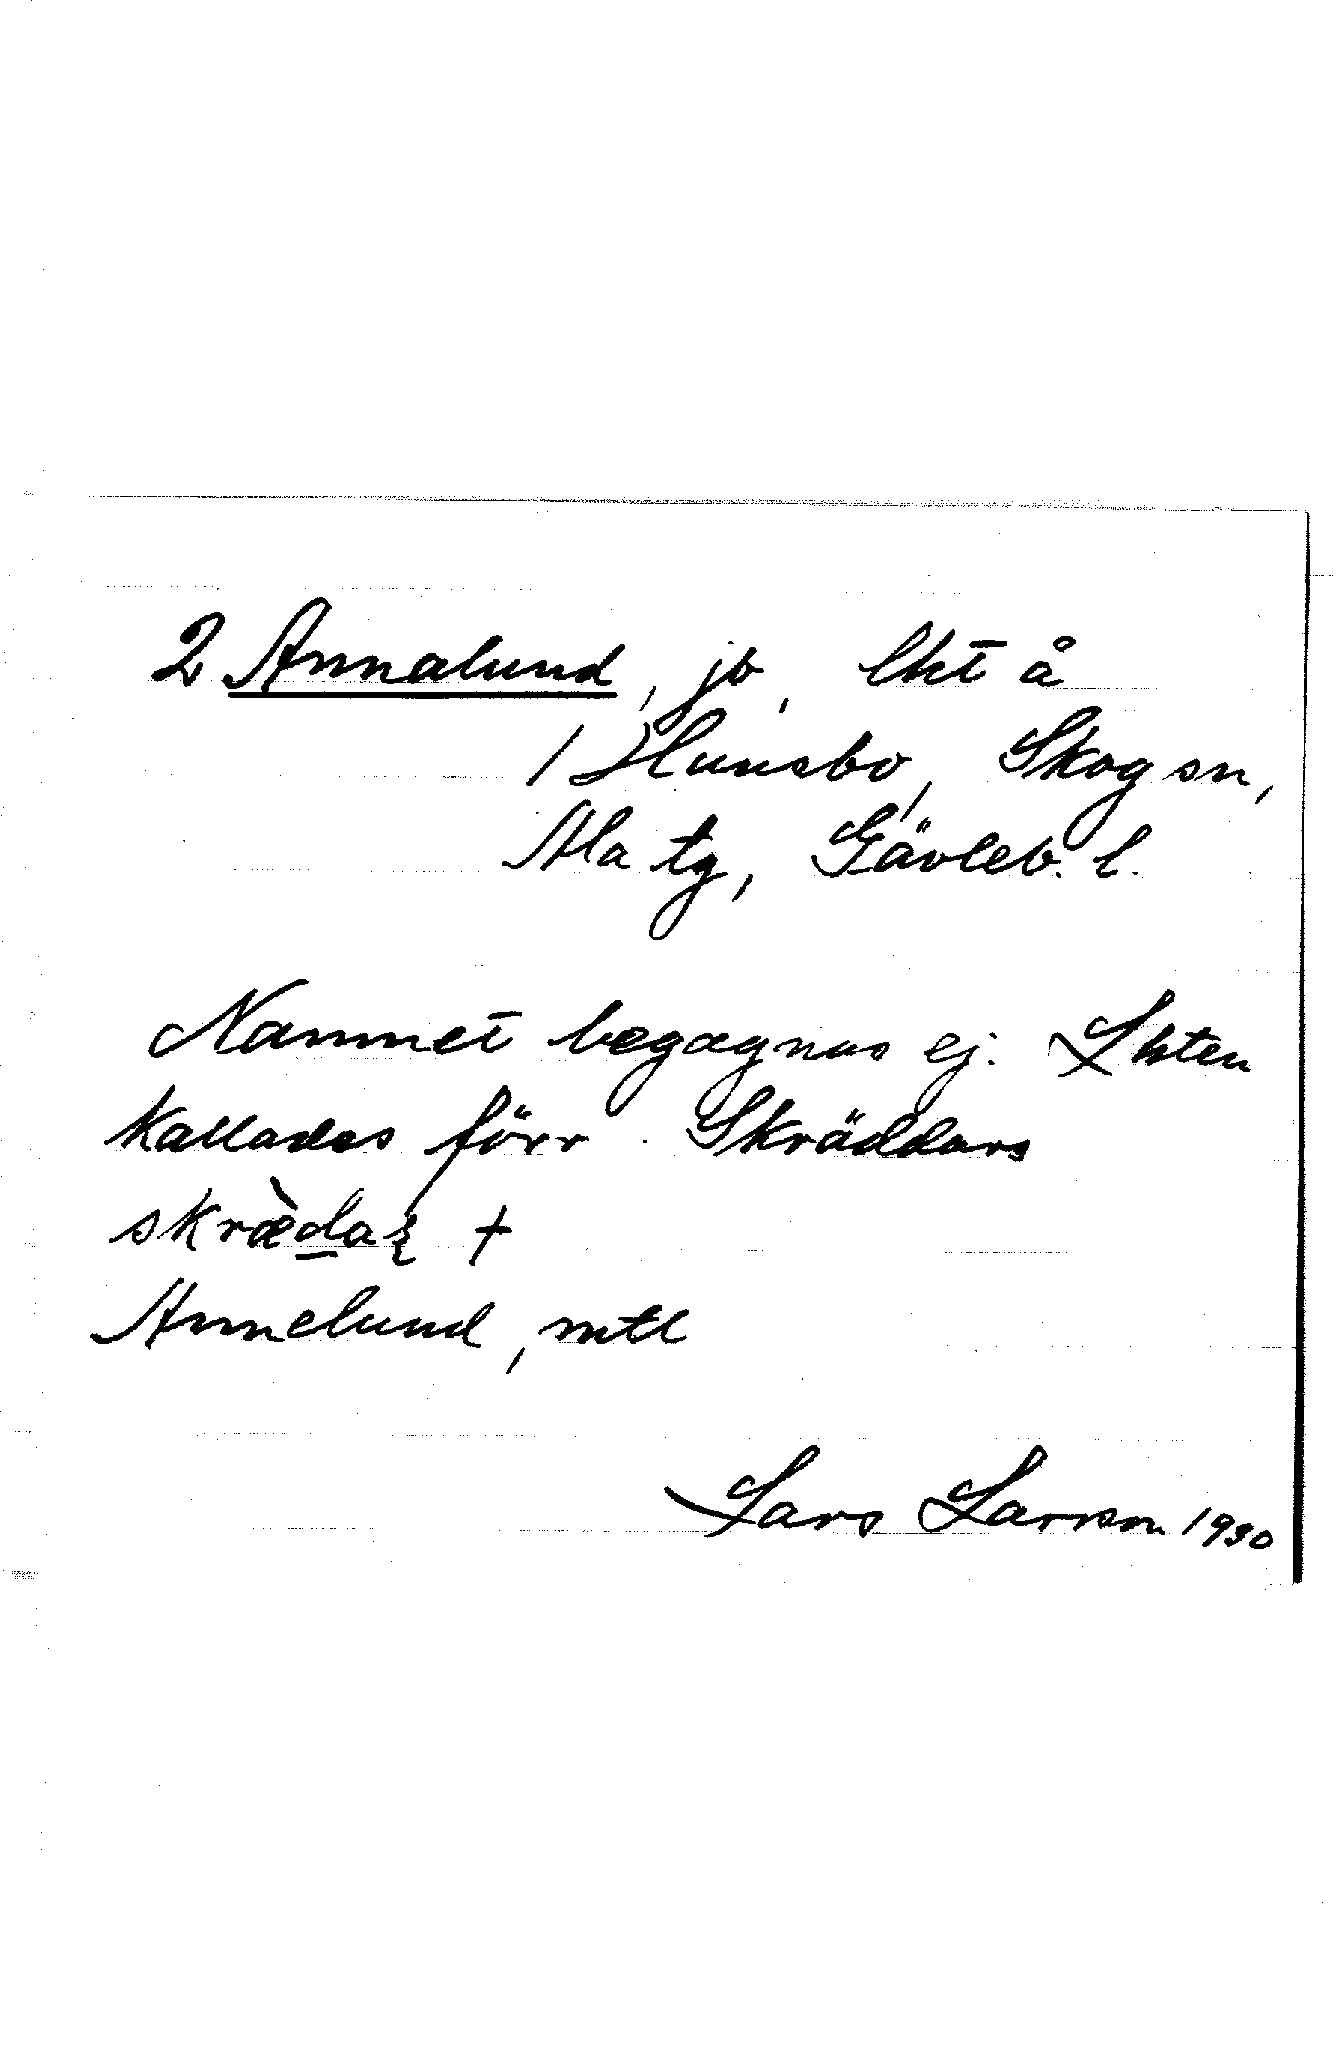 2 Annalund, jb, lht å
1 Hunsbo, Skog sn,
Ala tg, Gävleb. l.
Namnet begagnas ej. Lhten
kallades förr Skräddars
+
Annelund, mtl
Lars Larsson 1930